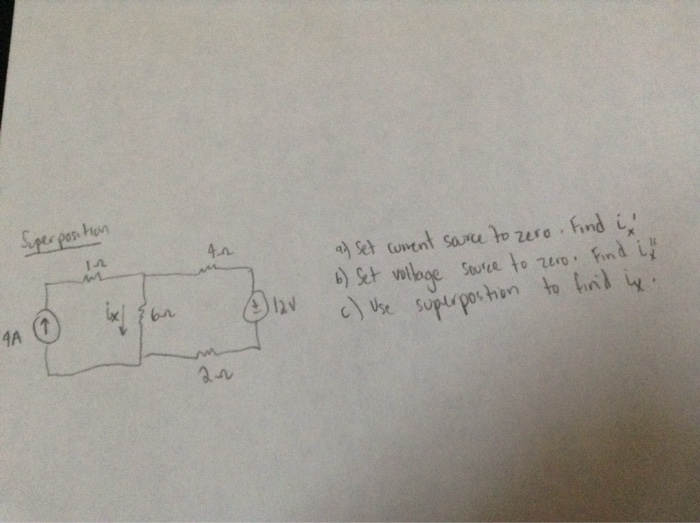 Superposition
1Ω
4Ω
4A
ix
6Ω
± 12V
2Ω
a) Set current source to zero. Find ix'
b) Set voltage source to zero. Find ix"
c) Use superpostion to find ix.